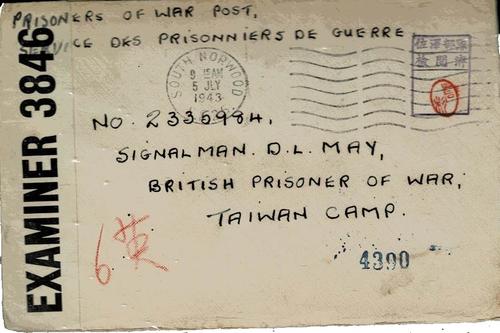 PRISONERS OF WAR POST,
SERVICE DES PRISONNIERS DE GUERRE
EXAMINER 3846
SOUTH NORWOOD
8 15AM
5 JLY
1943
NO. 2335984,
SIGNALMAN. D.L. MAY,
BRITISH PRISONER OF WAR,
TAIWAN CAMP.
6英
4390